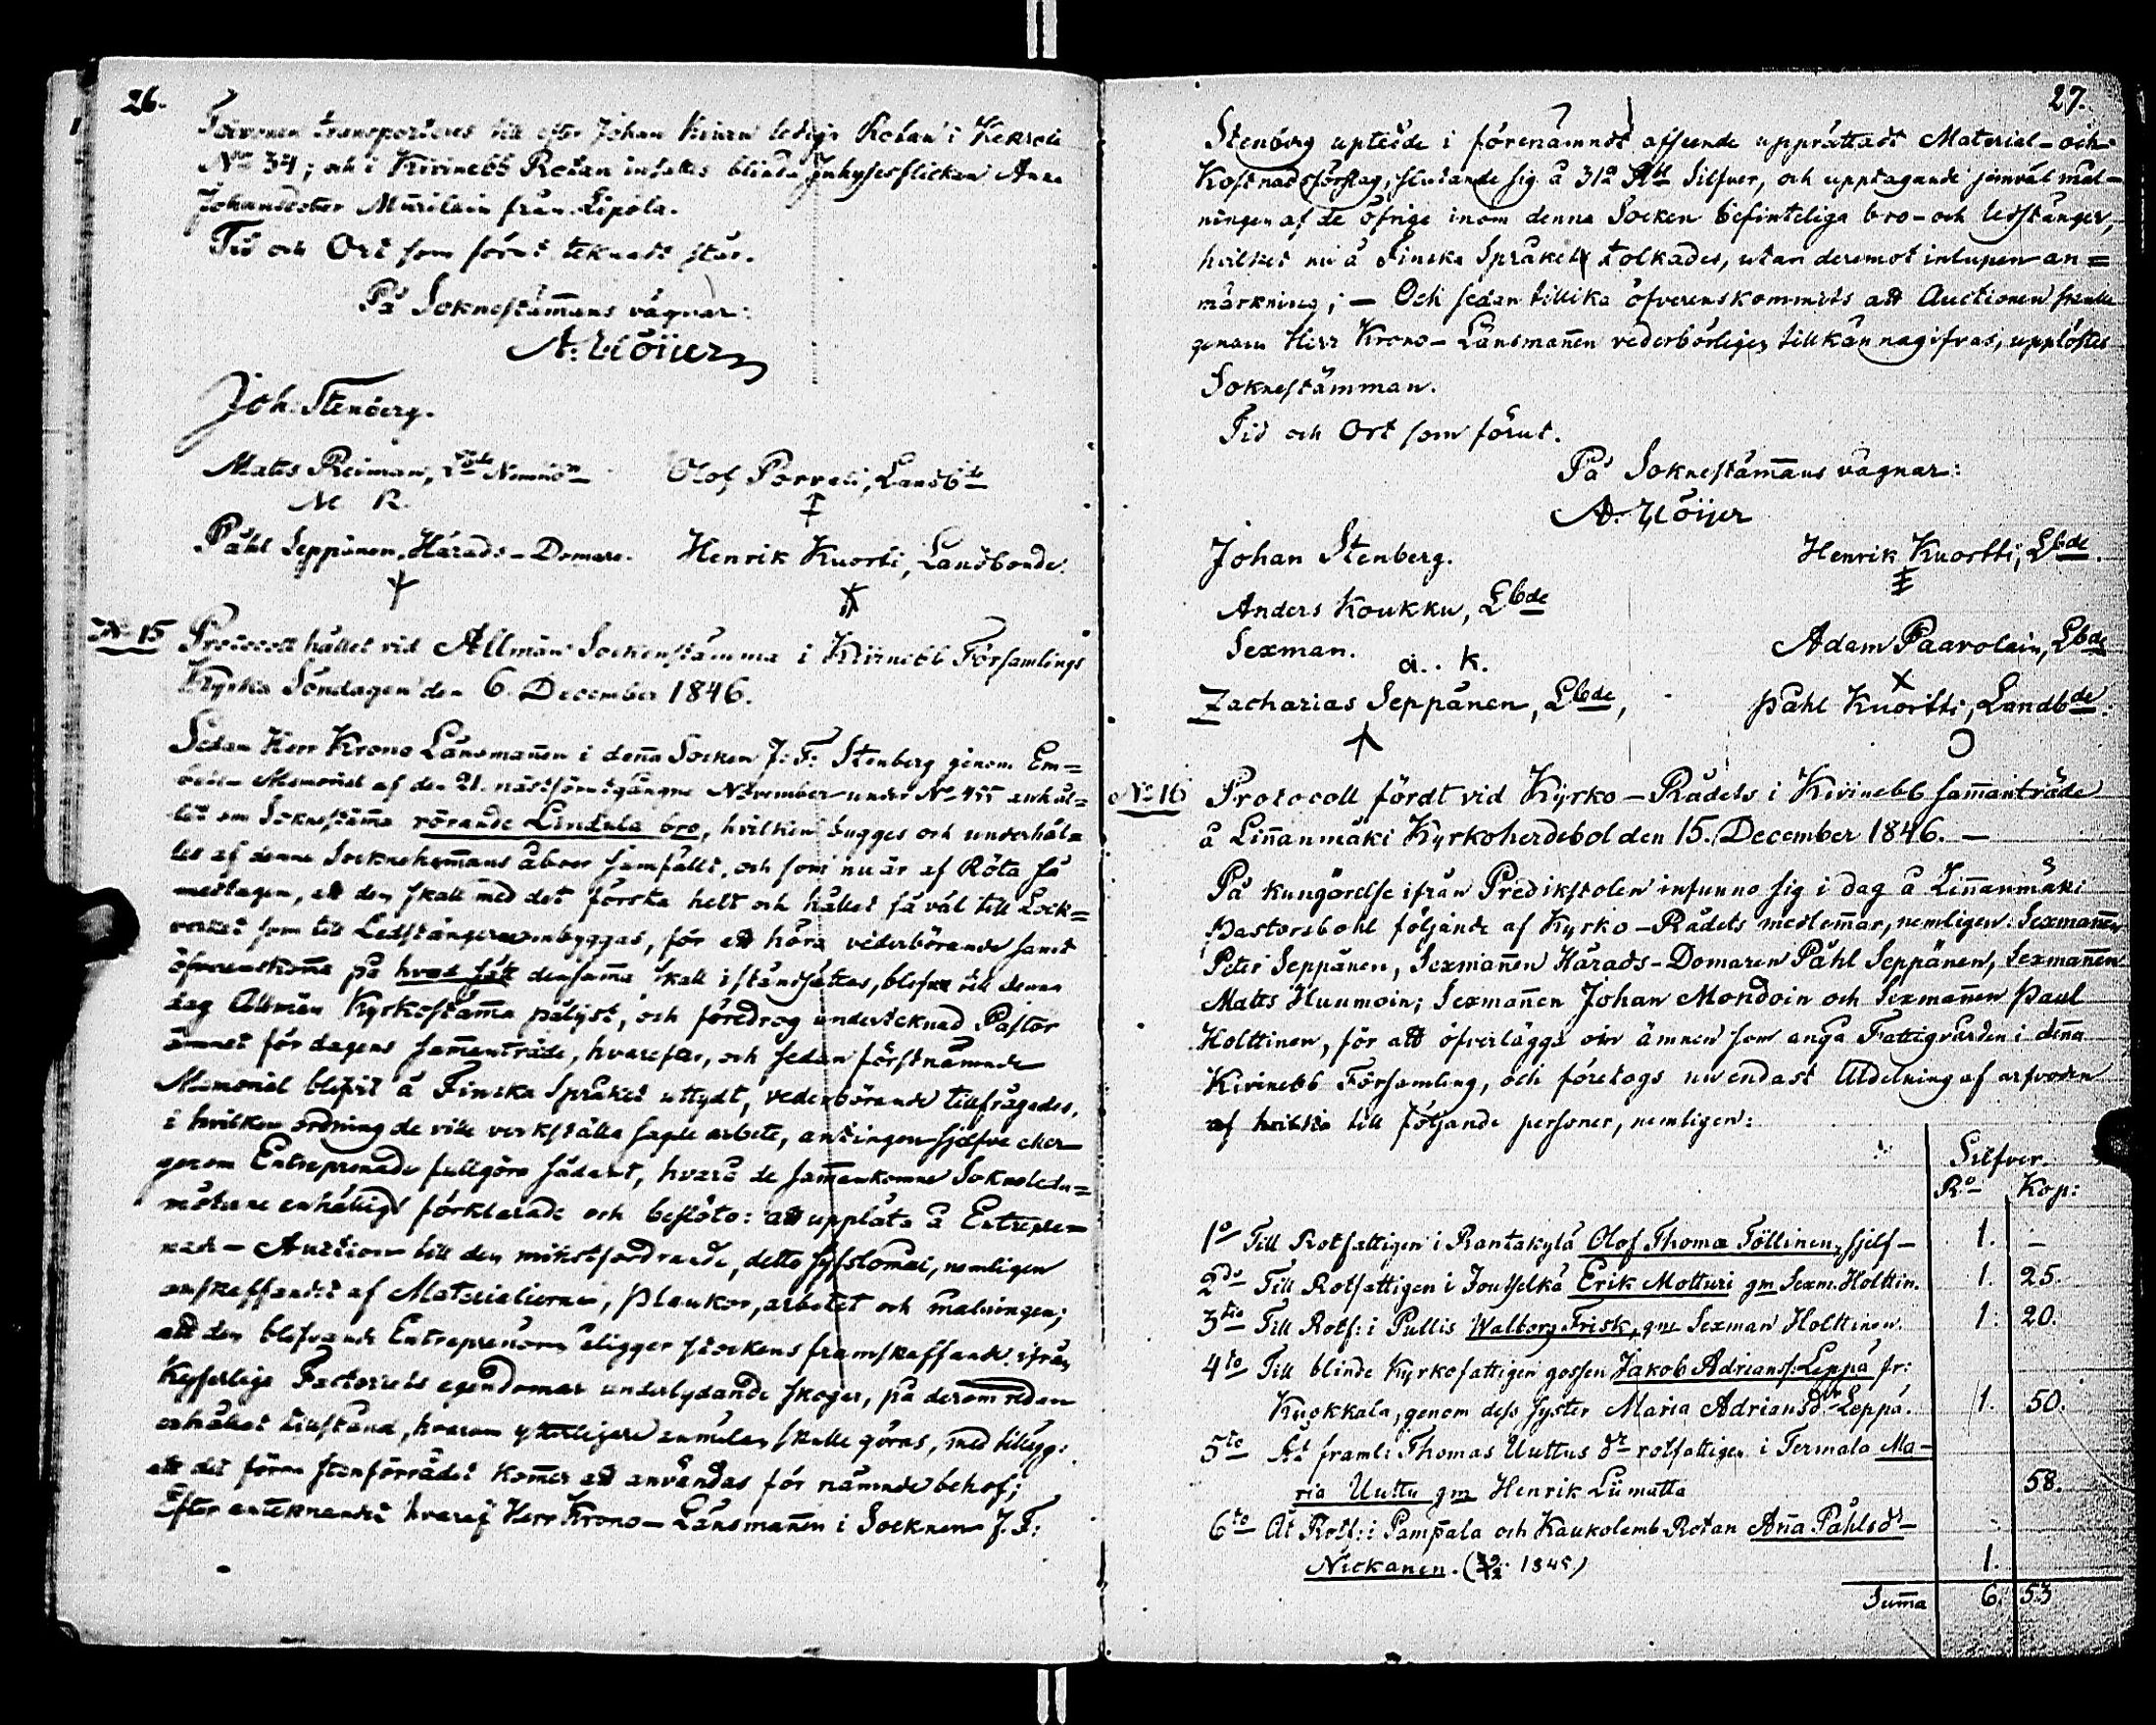 26.
Toivonen transporteres till efter Johan Kiuru ledige Rotan i Kekrola
No 34; och i Kivinebb Rotan intakes blinda Inhyses flickan Anna
Johansdotter Murilain från Lipola.
Tid och Ort som förut teknadt står.
På Soknestämans vägnar:
A. Höijer
Joh. Stenberg.
Matts Reiman, Nemndn Olof Porrali, Landbde
M R.
Påhl Seppänen, Härads-Domare. Henrik Kuortti, Landbonde.
No 15 Protocoll hållet vid Allmän Sockenstämma i Kivinebb Församlings
Kyrka Söndagen den 6. December 1846.
Sedan Herr Krono Länsmanen i dena Socken J: F: Stenberg genom Em=
bets Memorial af den 21. nästförutgångne November under No 455 anhål=
lit om Soknestäma rörande Lintula bro, hvilken bygges och underhål=
les af denne Socknehemans åboer samfällt, och som nu är af Röta så
medtagen, att den skall med det första helt och hållet så väl till Lock=
verket som till Ledstångerne ombyggas, för att höra vederbörande samt
öfverenskoma på hvad sätt densama skall iståndsättas, blefve till denna
dag Allmän Kyrkostäma pålyst, och föredrog undertecknad Pastor
ämnet för dagens samanträde, hvarefter, och sedan förstnämnde
Memorial blifvit å Finska Språket uttydt, vederbörande tillfrågades,
i hvilken ordning de ville verkställa sagde arbete, antingen sjelfve eller
genom Entreprenade fullgöra sådant, hvarå de samankomne Sokneleda=
möterne enhälligt förklarade och beslöto: att upplåta å Entrepre=
nad- Auction till den minstfordrande, detta sysslomål, nemligen
anskaffandet af Materialierne, plankor, arbetet och målningen;
att den blifvande Entreprenören åligger stockens framskaffande ifrån
Kejserlige Factoriets egendomar underlydande skogar, på derom redan
erhållet tillstånd, hvarom ytterligare anmälan skulle göras, med tillägg:
att det förra stenförrådet komer att användas för nämnde behof;
Efter antecknandet hvaraf Herr Krono-Länsmanen i Socknen J. F:
27.
Stenberg upteéde i förenämndt afseende upprättadt Material-och
Kostnadsförslag, slutande sig å 31a Rbl Silfver, och upptagande jemväl mål-
ningen af de öfrige inom denna Socken befinteliga bro-och ledstänger,
hvilket nu å Finska Språket tolkades, utan deremot inlupen an=
märkning; - Och sedan tillika öfverenskommits att Auctionen skulle
genom Herr Krono-Länsmanen vederbörligen tillkännagifvas, upplöstes
Soknestämman.
Tid och Ort som förut.
På Soknestämans vägnar:
A. Höijer
Johan Stenberg. Henrik Kuortti, Lbde.
Anders Koukku, Lbde
Sexman. Adam Paavolain, Lbde
a.. k.
Zacharias Seppänen, Lbde, Påhl Kuortti, Landbde.
No 16 Protocoll fördt vid Kyrko-Rådets i Kivinebb samanträde
å Linanmäki Kyrkoherdebol den 15. December 1846. -
På kungörelse ifrån Predikstolen infunno sig i dag å Linanmäki
Pastorsbohl följande af Kyrko-Rådets medlemar, nemligen: Sexmanen
Peter Seppänen, Sexmanen Härads-Domaren Påhl Seppänen, Sexmanen
Matts Huumoin; Sexmanen Johan Mondoin och Sexmanen Paul
Holttinen, för att öfverlägga om ämnen som angå Fattigvården i dena
Kivinebb Församling, och företogs nu endast Utdelning af arfvoden
af till följande personer, nemligen:
Silfver.
Ro Kop:
1o Till Rotfattigen i Rantakylä Olof Thomæ Töllinen, sjelf- 1. -
2do Till Rotfattigen i Joutselkä Erik Motturi gm Sexm. Holttin. 1. 25.
3tio Till Rotf: i Pullis Walborg Frisk, gm Sexman Holttinen. 1. 20.
4to Till blinde Kyrkofattigen gossen Jakob Adrianss: Leppä fr:
Kuokkala, genom dess syster Maria Adriansdr Leppä. 1. 50.
5to Åt framl: Thomas Uuttus dr rotfattigen i Termala Ma-
ria Uuttu gm Henrik Liimatta 58.
6to Åt Rotf: i Pampala och Kaukolemb Rotan Ana Påhlsdr
Nickanen. ( 1845) 1.
Suma 6. 53